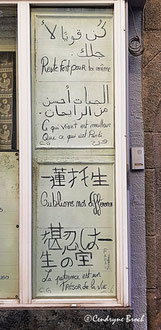 كُن قويًا لأ
جلك.
Reste fort pour toi même
الحيات أحسن
من
Ce qui vient est meilleur
Que ce qui est Passé
一蓮托生
Oublions nos différences
堪忍は一
生の宝
La patience est un
TRÉSOR de la vie
©Cendryne Broch